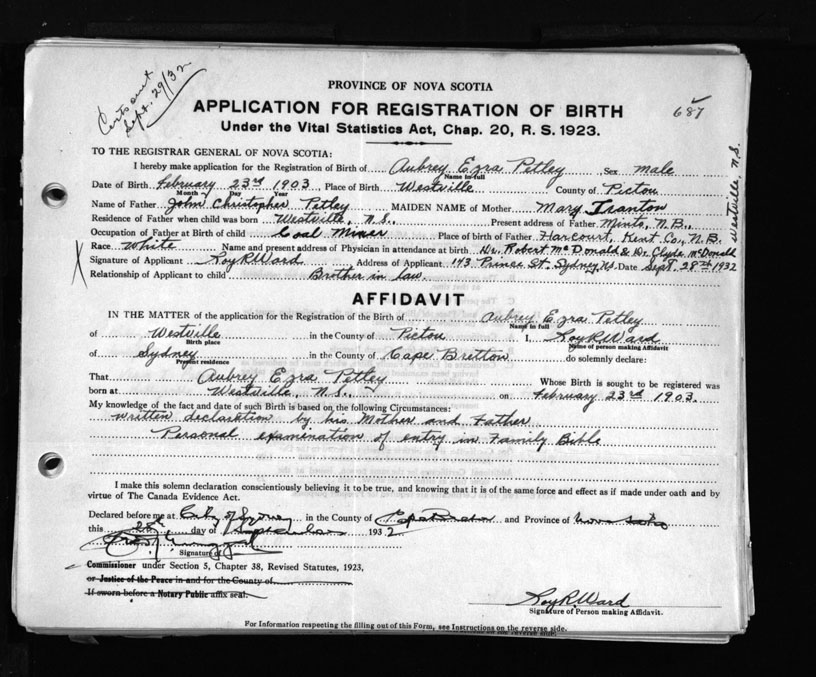 Certs sent
Sept. 29/32
PROVINCE OF NOVA SCOTIA
687
APPLICATION FOR REGISTRATION OF BIRTH
Under the Vital Statistics Act, Chap. 20, R. S. 1923.
TO THE REGISTRAR GENERAL OF NOVA SCOTIA:
I hereby make application for the Registration of Birth of Aubrey Ezra Petley Sex male
Name in full
Date of Birth February 23rd 1903 Place of Birth Westville County of Pictou
Month Day Year
Name of Father John Christopher Petley MAIDEN NAME of Mother Mary Iranton
Residence of Father when child was born Westville, N.S., Present address of Father Minto, N.B.,
Occupation of Father at Birth of child Coal Miner Place of birth of Father Harcourt, Kent Co, N.B.
Race White Name and present address of Physician in attendance at birth Dr. Robert McDonald & Dr Clyde McDonald Westville, N.S.
X Signature of Applicant Roy R Ward Address of Applicant 143 Prince St. Sydney, NS. Date Sept. 28th 1932
Relationship of Applicant to child Brother in law
AFFIDAVIT
IN THE MATTER of the application for the Registration of the Birth of Aubrey Ezra Petley
Name in full
of Westville in the County of Pictou I, Roy R Ward
Birth place Name of person making Affidavit
of Sydney in the County of Cape Bretton do solemnly declare:
Present residence
That Aubrey Ezra Petley Whose Birth is sought to be registered was
born at Westville, N.S., on February 23rd 1903
My knowledge of the fact and date of such Birth is based on the following Circumstances:
written declaration by his Mother and Father
Personal examination of entry in Family Bible
I make this solemn declaration conscientiously believing it to be true, and knowing that it is of the same force and effect as if made under oath and by
virtue of The Canada Evidence Act.
Declared before me at City of Sydney in the County of Cape Breton and Province of Nova Scotia
this 28th day of September 1932
Signature of
Commissioner under Section 5, Chapter 38, Revised Statutes, 1923,
or Justice of the Peace in and for the County of
If sworn before a Notary Public affix seal.
Roy R. Ward
Signature of Person making Affidavit.
For Information respecting the filling out of this Form, see Instructions on the reverse side.